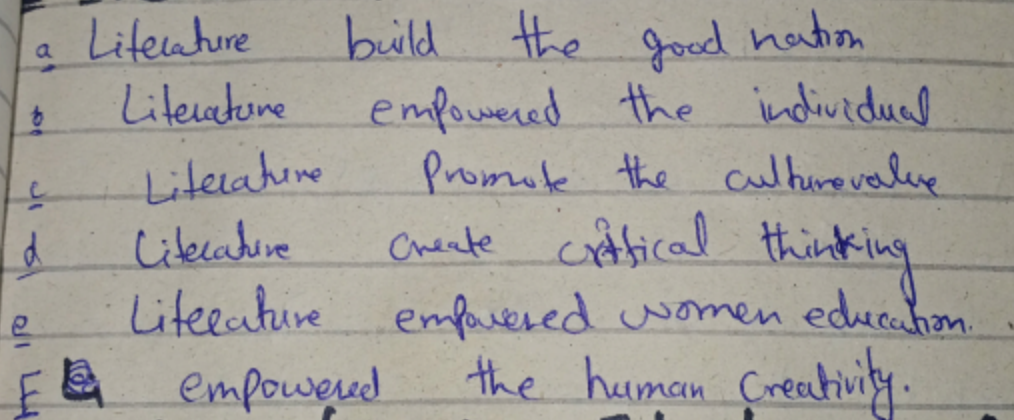 a Literature build the good nation
b Literature empowered the individual
c Literature Promote the culture value
d Literature create critical thinking
e Literature empowered women education.
F empowered the human Creativity.